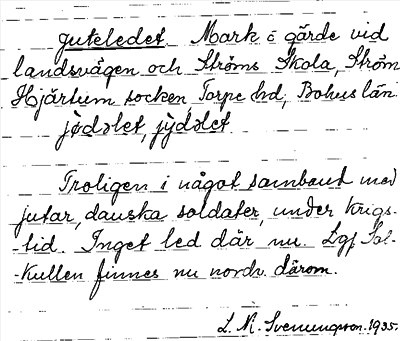 Juteledet. Mark o gärde vid
landsvägen och Ströms Skola, Ström
Hjärtum socken Torpe hd, Bohus län
jødəlet, jydəlet
Troligen i något samband med
jutar, danska soldater, under krigs-
-tid. Inget led där nu. Lgf Sal-
-Kullen finnes nu nordv. därom.
L. N. Svenungsson. 1935.